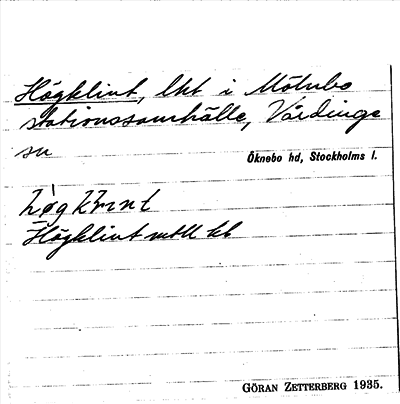 Högklint, lht i Mölnbo
stationssamhälle, Vårdinge
sn Öknebo hd, Stockholms l.
Högklint mtll kb
GÖRAN ZETTERBERG 1935.